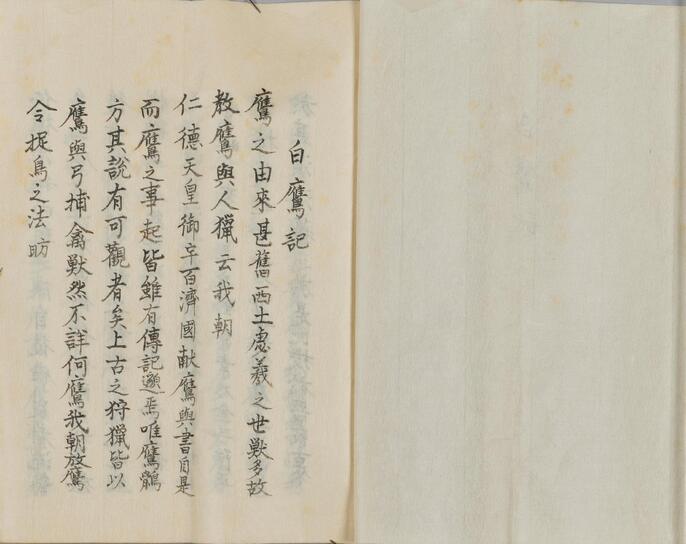 白鷹記
鷹之由來甚舊西土虙羲之世獣多故
教鷹與人獵云我朝
仁德天皇御宇百濟國献鷹與書自是
而鷹之事起皆雖有傳記邈焉唯鷹鶻
方其說有可觀者矣上古之狩獵皆以
鷹與弓捕禽獣然不詳何鷹我朝放鷹
令捉鳥之法昉